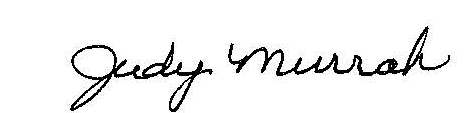 Judy Murrah